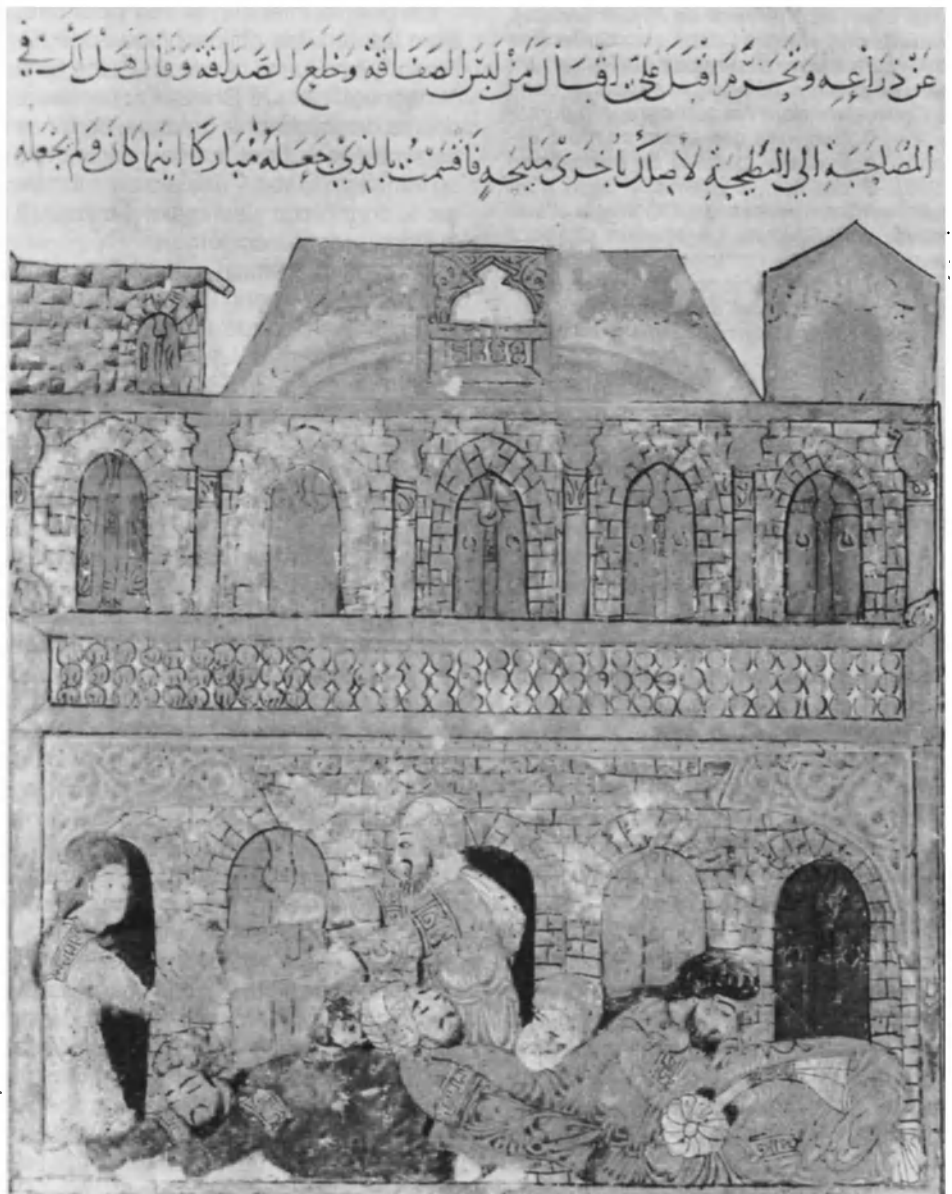 عَنْ ذِرَاعِهِ وَتَحَرَّمَ اَقْبَلَ عَلَيَّ اِقْبَالَ مَنْ لَبِسَ الصَّفَاقَةَ وَخَلَعَ الصَّدَاقَةَ وَقَالَ هَلْ لَكَ فِي
المُصَاحَبَةِ الى البَطِيحَةِ لأَصِلَكَ بِأُخْرَى مَلِيحَةٍ فَأَقْسَمْتُ بِالَّذِي جَعَلَهُ مُبَارَكًا اينما كانَ وَلَمْ يَجْعَلْهُ